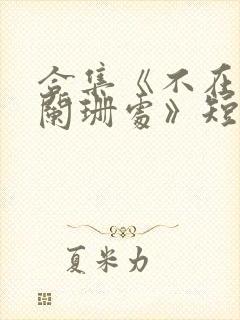 合集《不在
阑珊处》短
夏米力